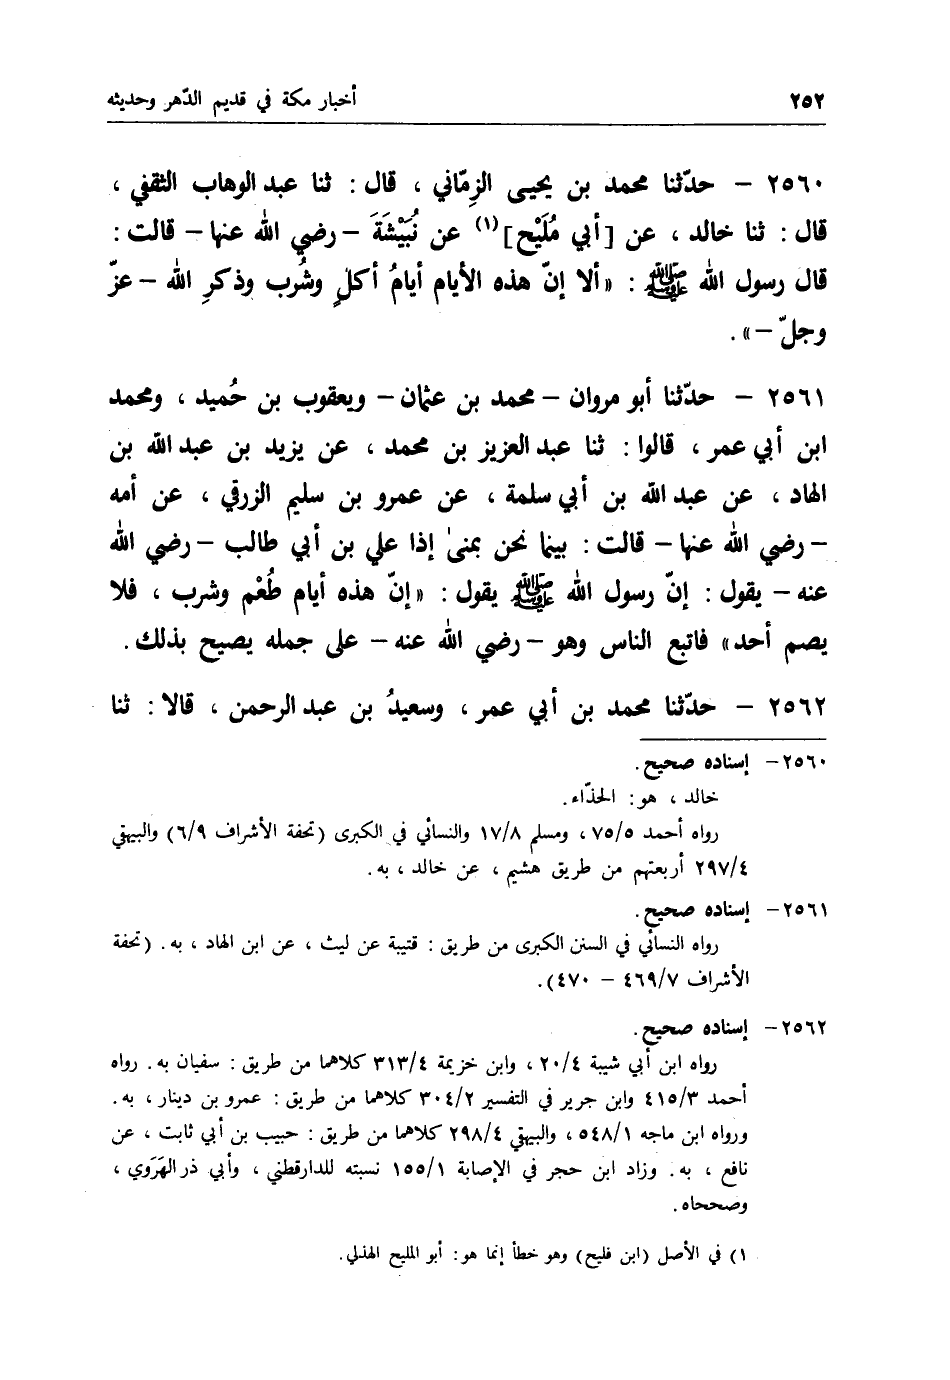 ٢٥٢ أخبار مكة في قديم الدّهر وحديثه
٢٥٦٠ – حدّثنا محمد بن يحيى الزِمّاني ، قال : ثنا عبد الوهاب الثقفي ،
قال : ثنا خالد ، عن [أبي مُلَيْح](١) عن نُبَيْشَةَ – رضي الله عنها – قالت :
قال رسول الله ﷺ : «ألا إنّ هذه الأيام أيامُ أكلٍ وشُرب وذكرِ الله – عزّ
وجلّ –» .
٢٥٦١ – حدّثنا أبو مروان – محمد بن عثمان – ويعقوب بن حُميد ، ومحمد
ابن أبي عمر ، قالوا : ثنا عبد العزيز بن محمد ، عن يزيد بن عبد الله بن
الهاد ، عن عبد الله بن أبي سلمة ، عن عمرو بن سليم الزرقي ، عن أمه
– رضي الله عنها – قالت : بينما نحن بمنىٰ إذا علي بن أبي طالب – رضي الله
عنه – يقول : إنّ رسول الله ﷺ يقول : «إنّ هذه أيام طُعْم وشرب ، فلا
يصم أحد» فاتبع الناس وهو – رضي الله عنه – على جمله يصيح بذلك .
٢٥٦٢ – حدّثنا محمد بن أبي عمر ، وسعيدُ بن عبد الرحمن ، قالا : ثنا
٢٥٦٠ – إسناده صحيح .
خالد ، هو : الحذّاء .
رواه أحمد ٧٥/٥ ، ومسلم ١٧/٨ والنسائي في الكبرى (تحفة الأشراف ٦/٩) والبيهقي
٢٩٧/٤ أربعتهم من طريق هشيم ، عن خالد ، به .
٢٥٦١ – إسناده صحيح .
رواه النسائي في السنن الكبرى من طريق : قتيبة عن ليث ، عن ابن الهاد ، به . (تحفة
الأشراف ٤٦٩/٧ – ٤٧٠) .
٢٥٦٢ – إسناده صحيح .
رواه ابن أبي شيبة ٢٠/٤ ، وابن خزيمة ٣١٣/٤ كلاهما من طريق : سفيان به . رواه
أحمد ٤١٥/٣ وابن جرير في التفسير ٣٠٤/٢ كلاهما من طريق : عمرو بن دينار ، به .
ورواه ابن ماجه ٥٤٨/١ ، والبيهقي ٢٩٨/٤ كلاهما من طريق : حبيب بن أبي ثابت ، عن
نافع ، به . وزاد ابن حجر في الإصابة ١٥٥/١ نسبته للدارقطني ، وأبي ذر الهَرَوي ،
وصححاه .
١) في الأصل (ابن فليح) وهو خطأ إنما هو : أبو المليح الهذلي .